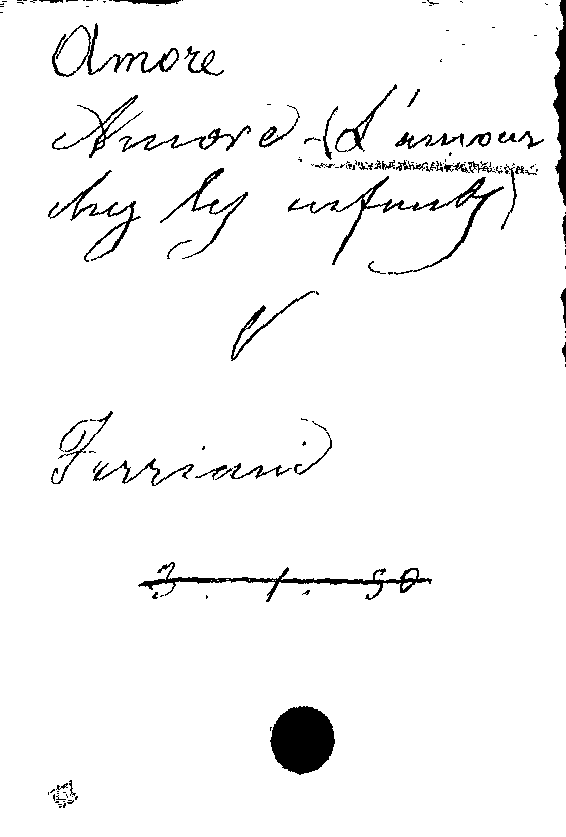 Amore
Amore (L'amour
chez les enfants)
Ferriani
3.1.50